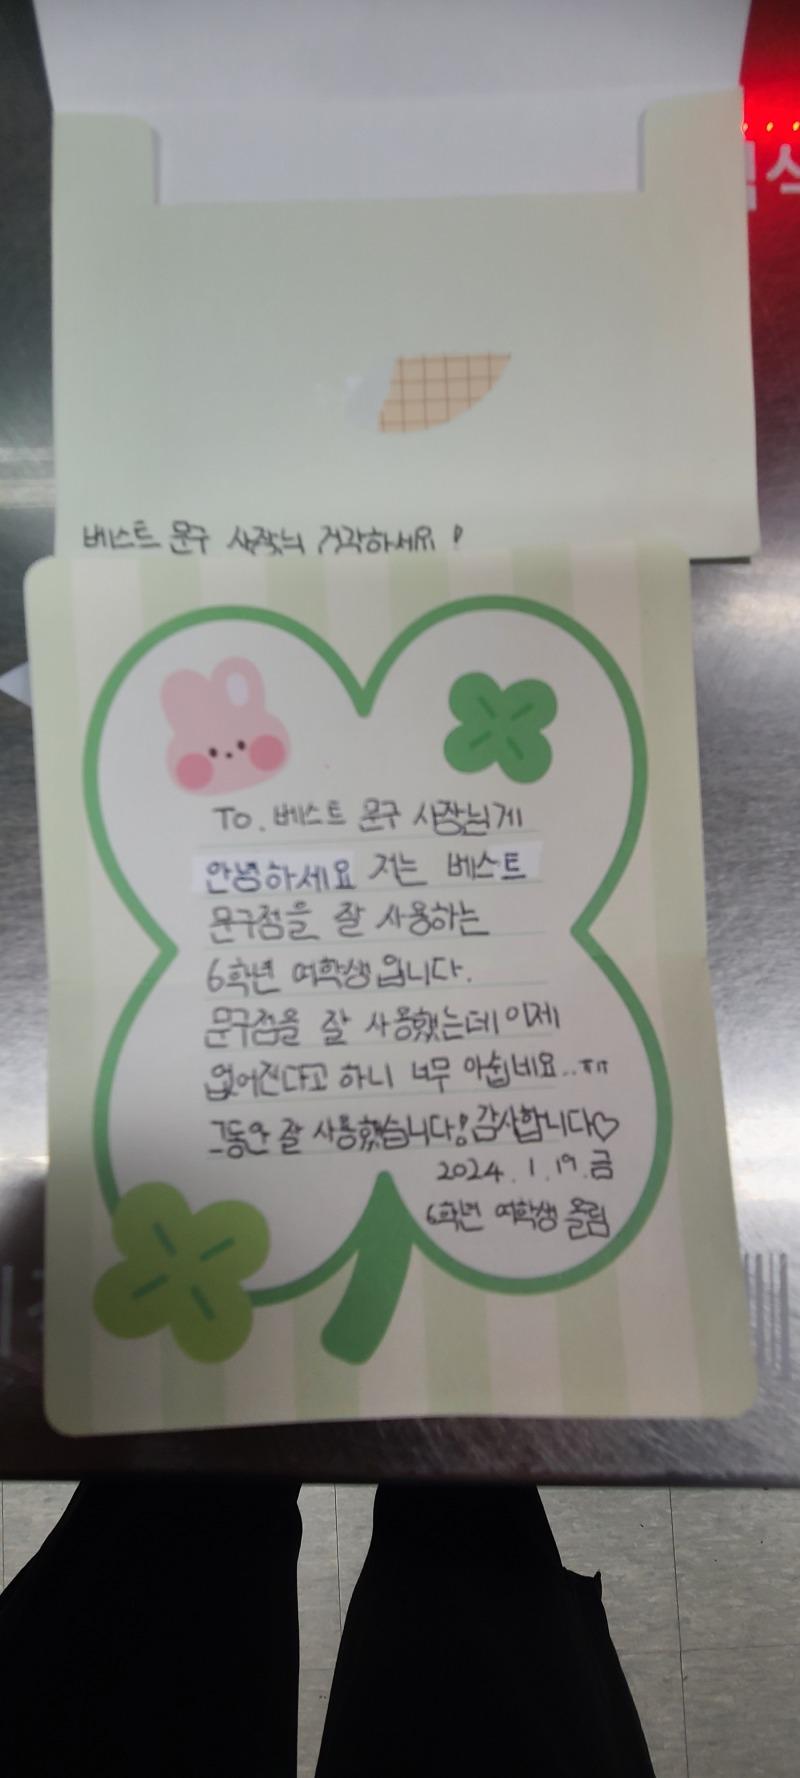 베스트 문구 사장님 건강하세요!
To. 베스트 문구 사장님께
안녕하세요 저는 베스트
문구점을 잘 사용하는
6학년 여학생입니다.
문구점을 잘 사용했는데 이제
없어진다고 하니 너무 아쉽네요..ㅠㅠ
그동안 잘 사용했습니다! 감사합니다♡
2024. 1. 19. 금
6학년 여학생 올림